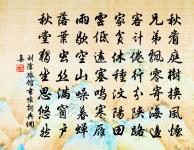 秋看庭樹換風煙
兄弟飄零寄海邊
客計倦行分陝路
家貧休種汶陽田
雲低遠塞鳴寒雁
雨歇空山噪暮蟬
落葉蟲絲滿窗戶
秋堂獨坐思悠然
劉滄旅館書懷詩
集